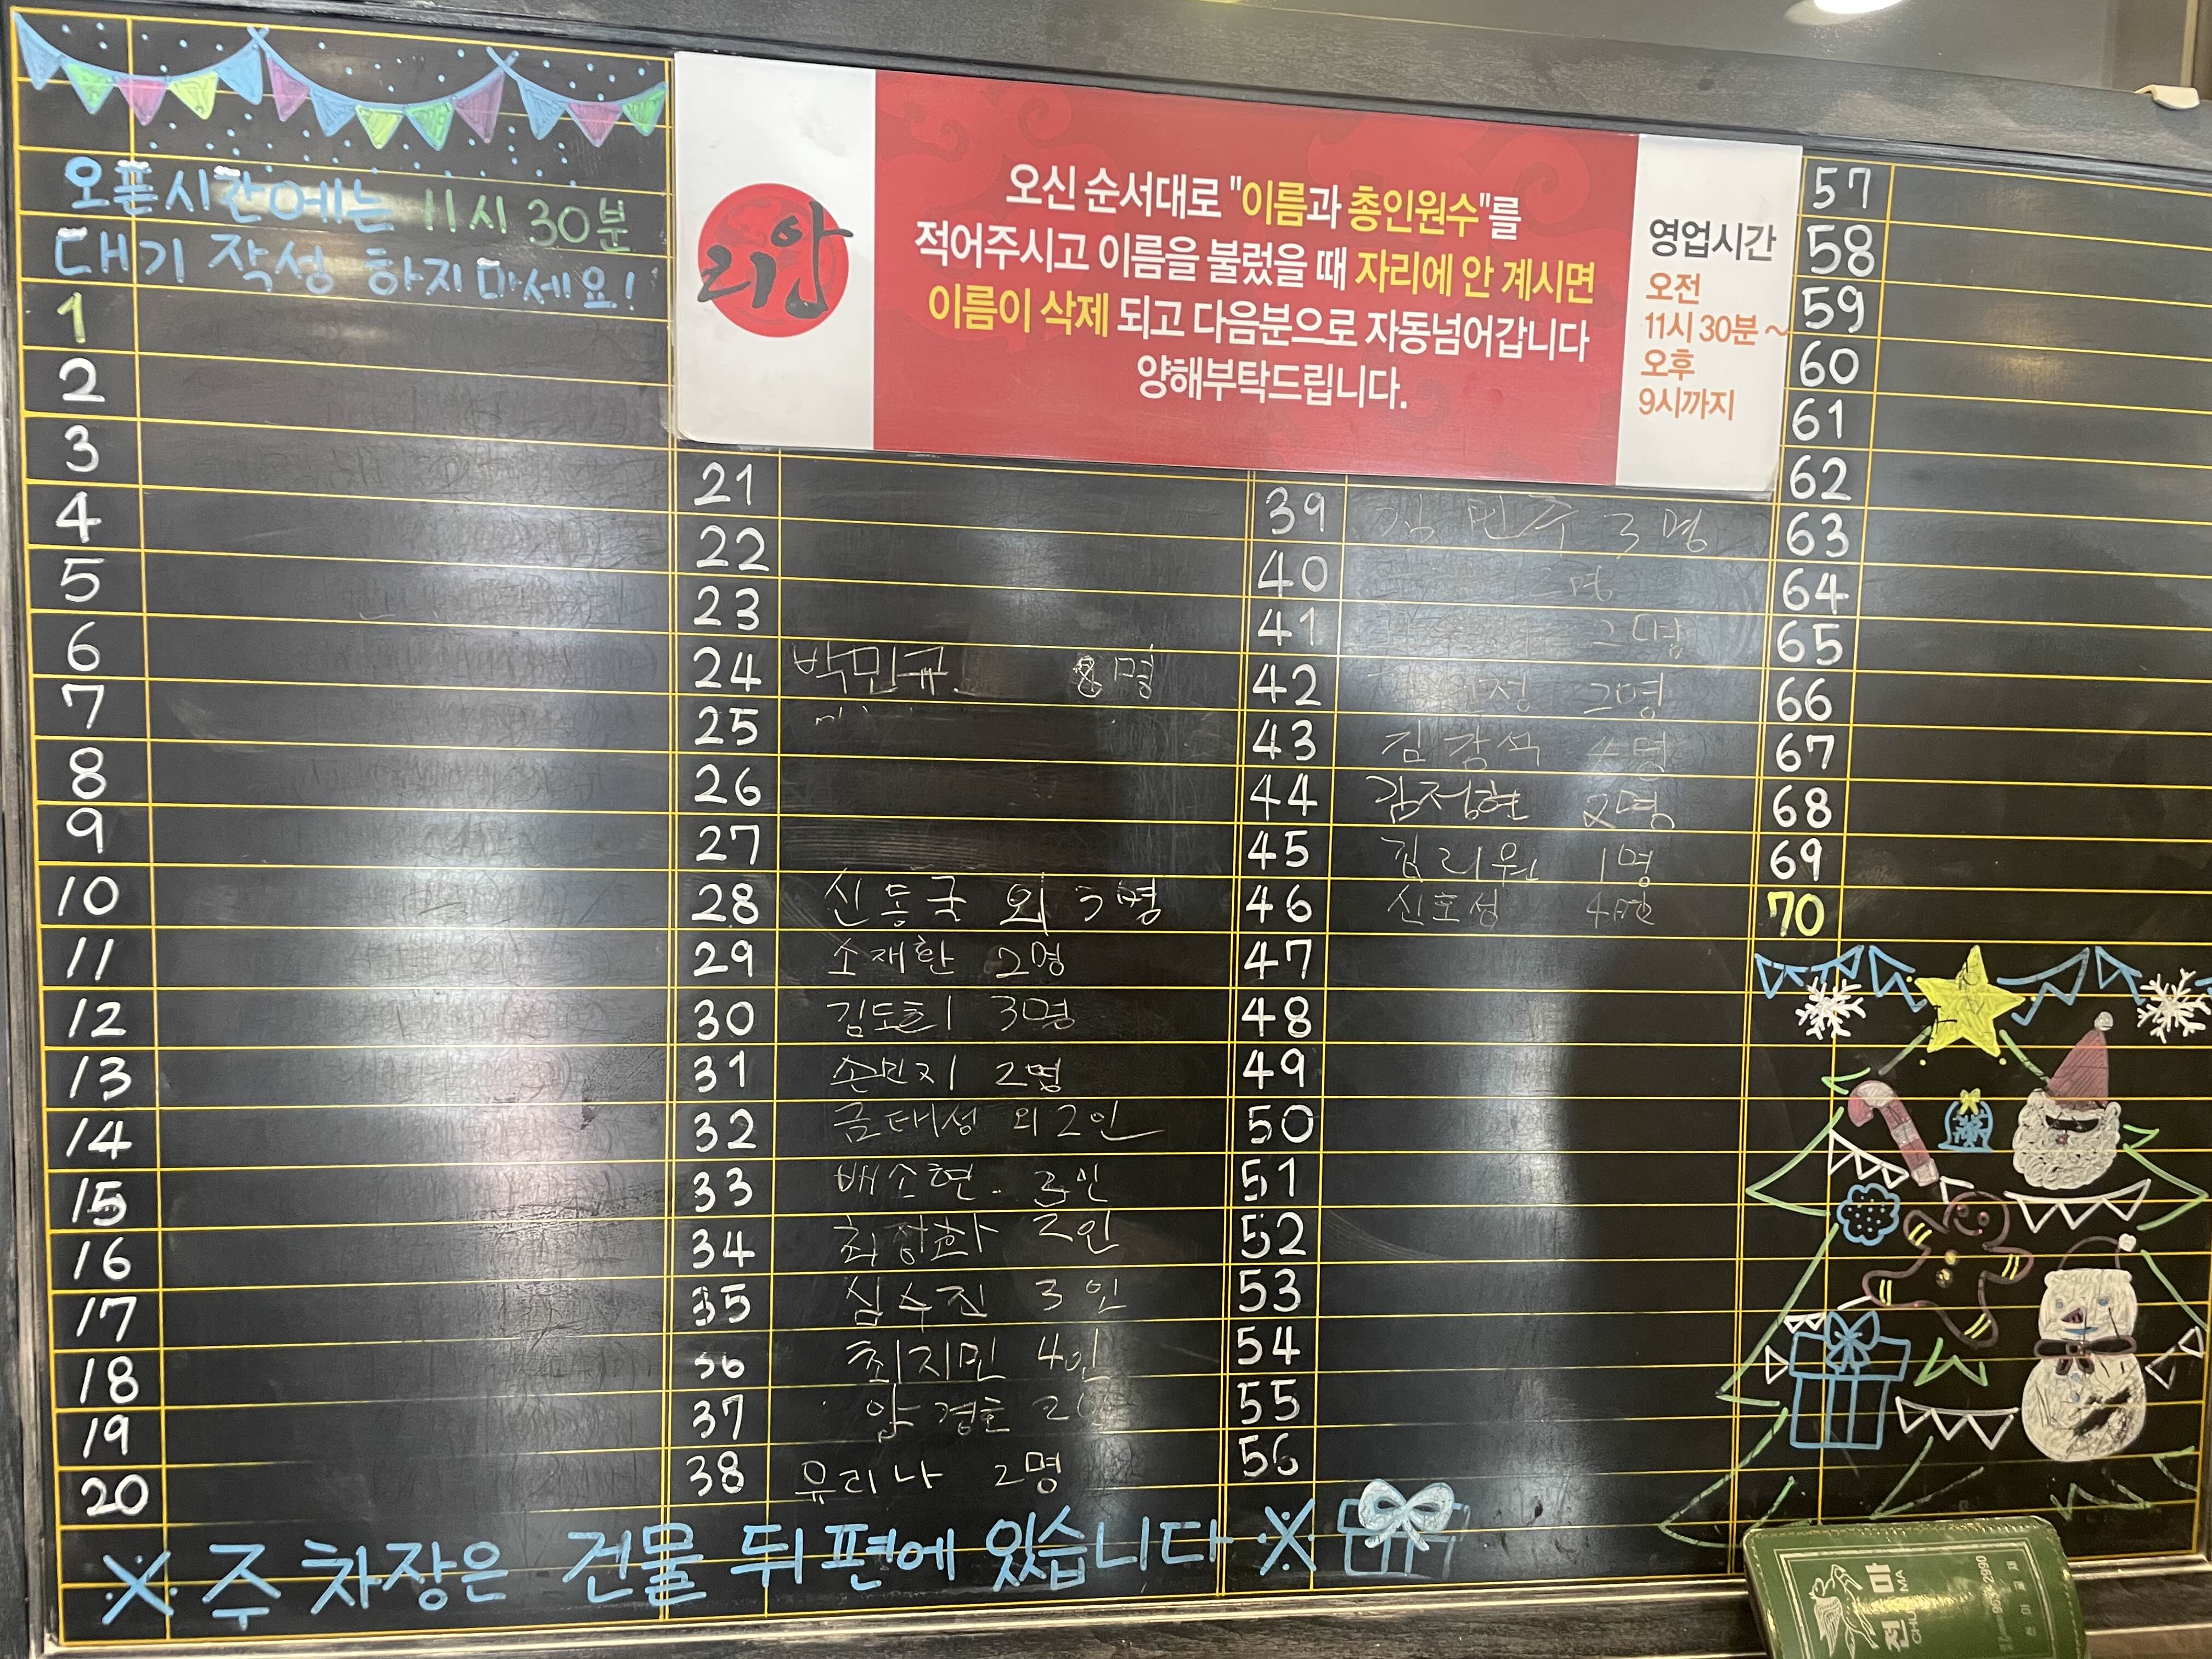 오픈시간에는 11시 30분
대기 작성 하지마세요!
1
2
3
4
5
6
7
8
9
10
11
12
13
14
15
16
17
18
19
20
리안
오신 순서대로 "이름과 총인원수"를
적어주시고 이름을 불렀을 때 자리에 안 계시면
이름이 삭제 되고 다음분으로 자동넘어갑니다
양해부탁드립니다.
영업시간
오전
11시 30분 ~
오후
9시까지
21
22
23
24 박민규 8명
25
26
27
28 신동국 외 3명
29 소재환 2명
30 김도희 3명
31 손민지 2명
32 금태성 외 2인
33 배소현. 3인
34 2인
35 심수진 3인
36 최지민 4인
37 경호
38 유리나 2명
39 김민주 3명
40 명
41 2명
42 2명
43 김강석 4명
44 김정현 2명
45 김리원 1명
46 신호성 4명
47
48
49
50
51
52
53
54
55
56
57
58
59
60
61
62
63
64
65
66
67
68
69
70
※ 주차장은 건물 뒤편에 있습니다 ※
천마
CHUNMA